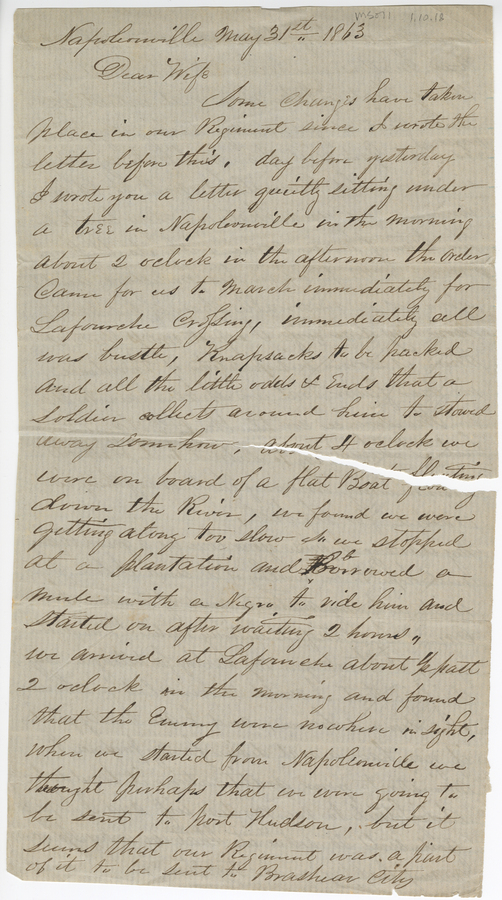 MS071 1.10.18
Napoleonville May 31st 1863
Dear Wife
Some changes have taken
place in our Regiment since I wrote the
letter before this, day before yesterday
I wrote you a letter quietly sitting under
a tree in Napoleonville in the morning
about 2 oclock in the afternoon the order
Came for us to March immediately for
Lafourche Crossing, immediately all
was bustle, Knapsacks to be packed
and all the little odds & Ends that a
soldier collects around him to stowed
away somehow, about 4 oclock we
were on board of a flat Boat floating
down the River, we found we were
getting along too slow so we stopped
at a plantation and Borrowed a
mule with a Negro to ride him and
started on after waiting 2 hours,
we arrived at Lafourche about ½ past
2 oclock in the morning and found
that the Enemy were nowhere in sight,
when we started from Napoleonville we
thought perhaps that we were going to
be sent to port Hudson, but it
seems that our Regiment was a part
of it to be sent to Brashear City